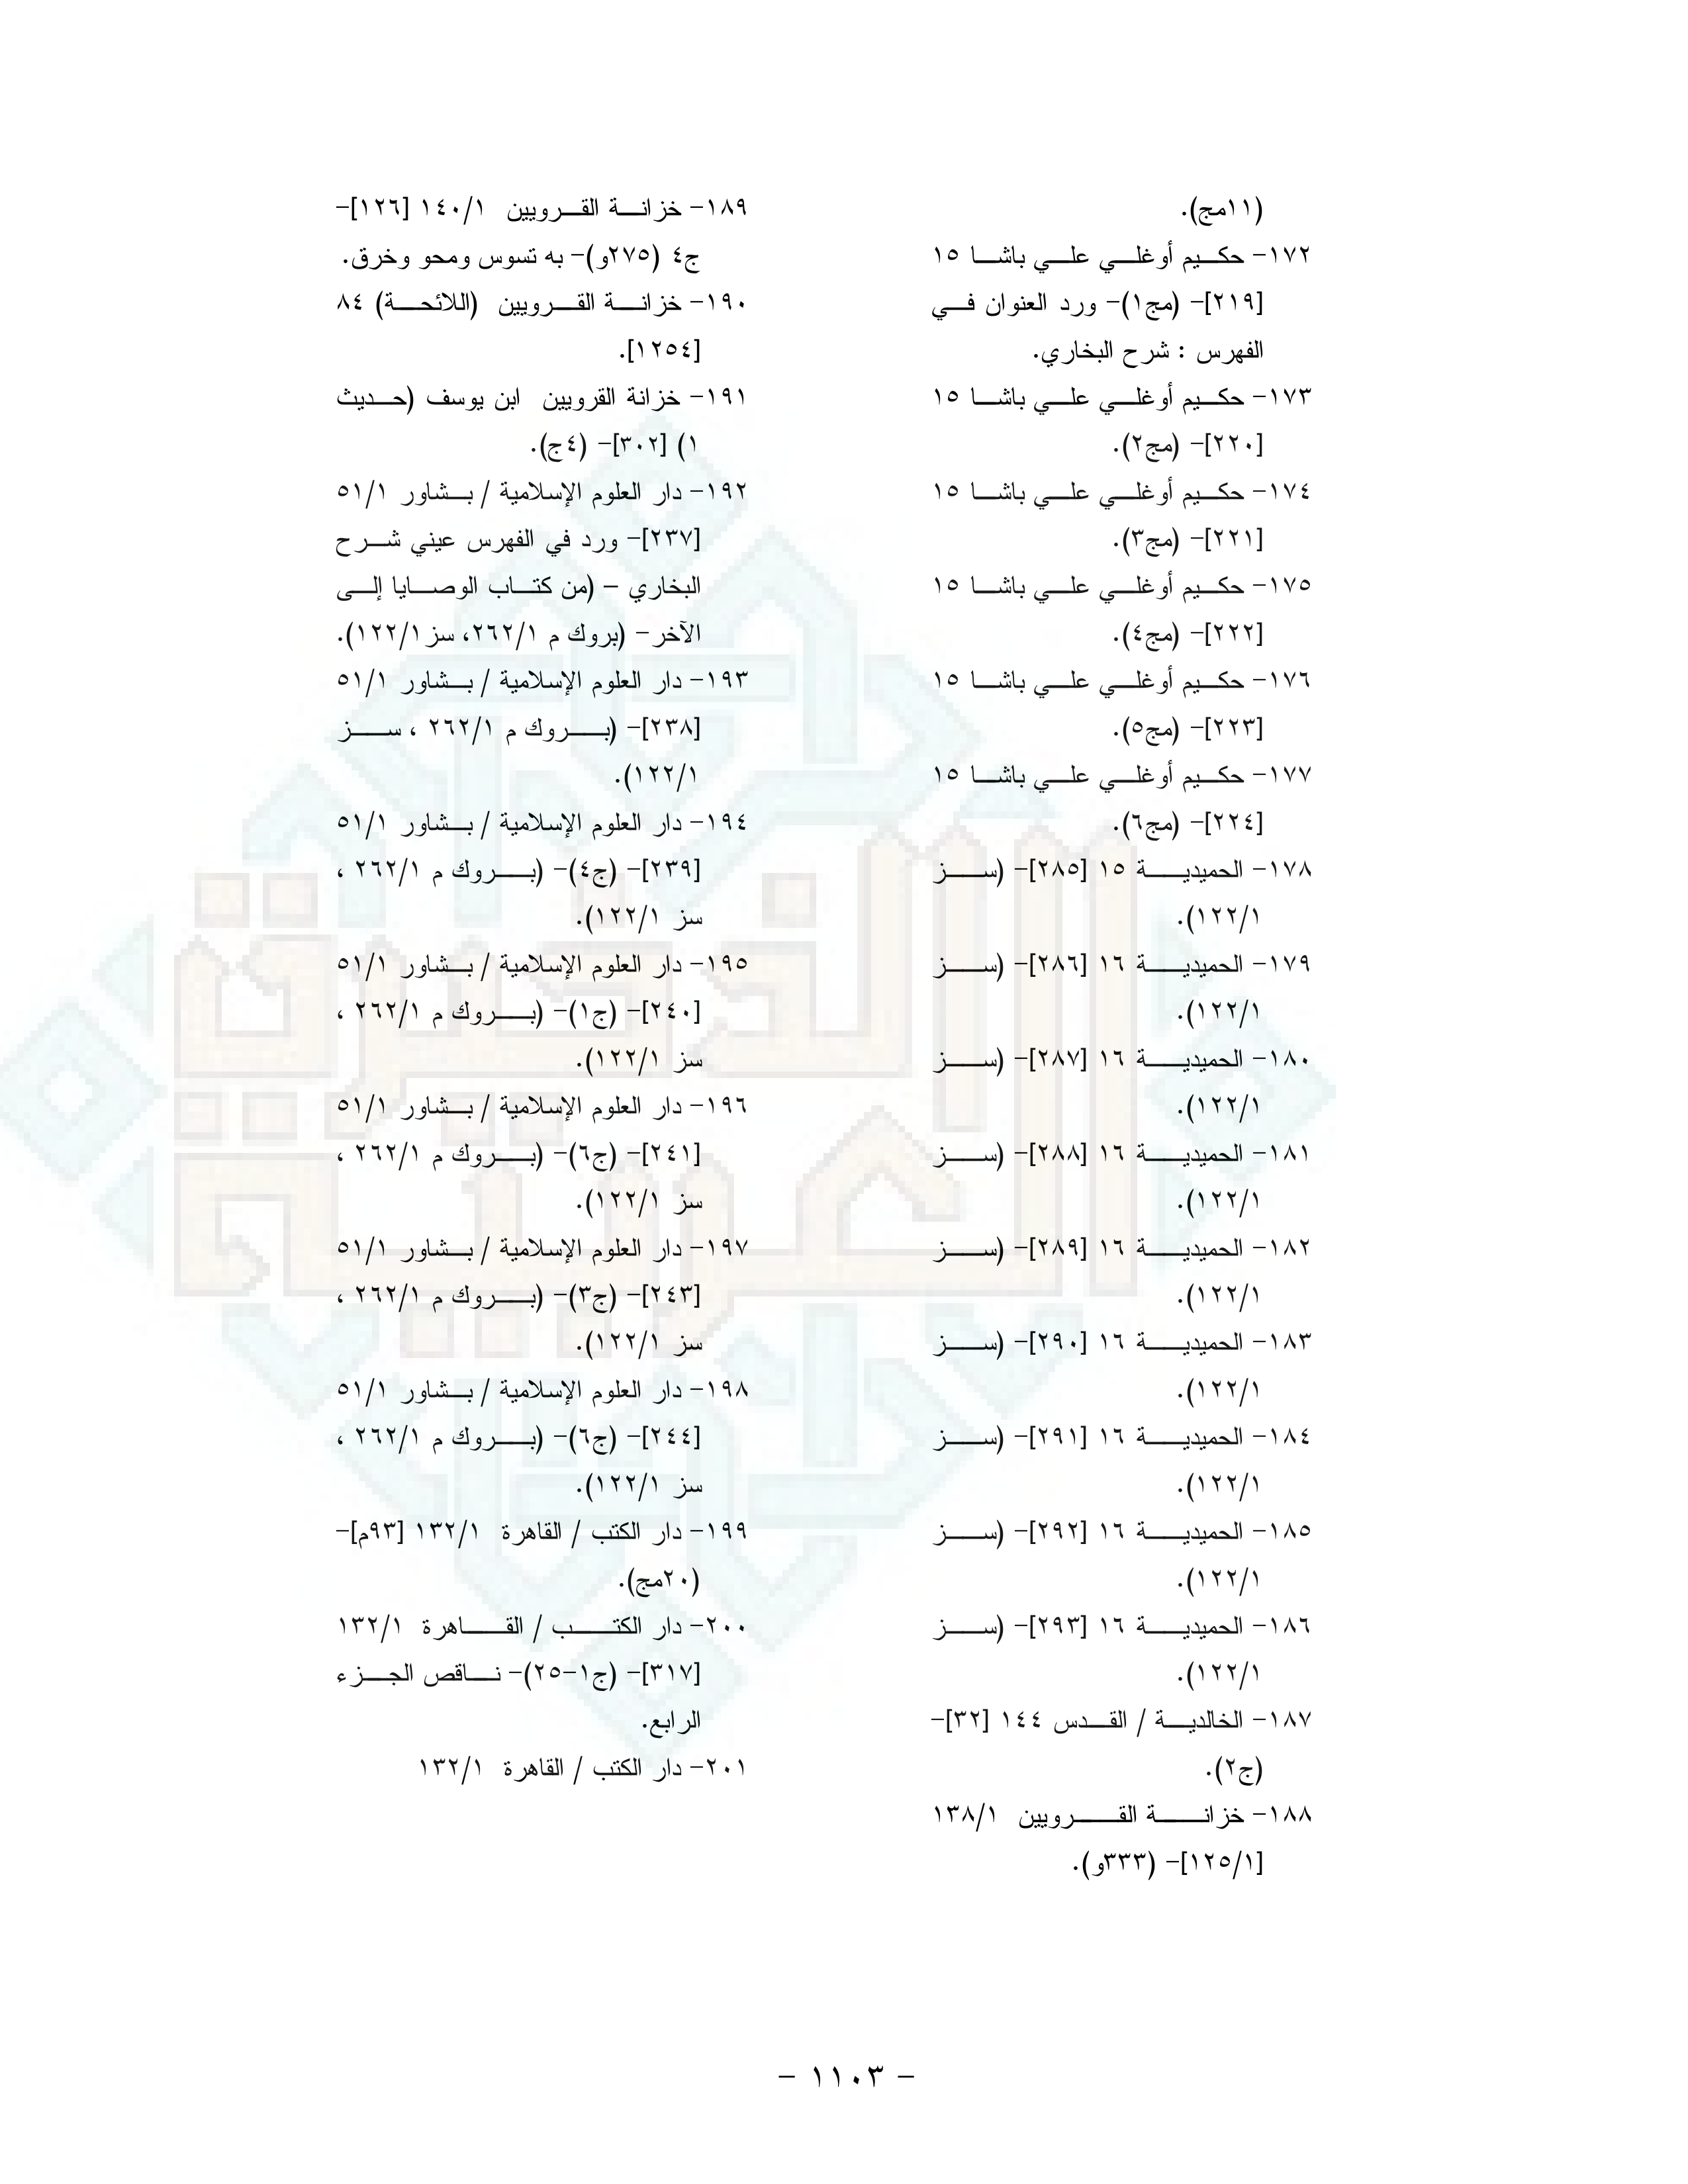 (١١مج).
١٧٢- حكيم أوغلي علي باشا ١٥
[٢١٩]- (مج١)- ورد العنوان في
الفهرس : شرح البخاري.
١٧٣- حكيم أوغلي علي باشا ١٥
[٢٢٠]- (مج٢).
١٧٤- حكيم أوغلي علي باشا ١٥
[٢٢١]- (مج٣).
١٧٥- حكيم أوغلي علي باشا ١٥
[٢٢٢]- (مج٤).
١٧٦- حكيم أوغلي علي باشا ١٥
[٢٢٣]- (مج٥).
١٧٧- حكيم أوغلي علي باشا ١٥
[٢٢٤]- (مج٦).
١٧٨- الحميدية ١٥ [٢٨٥]- (سز
١٢٢/١).
١٧٩- الحميدية ١٦ [٢٨٦]- (سز
١٢٢/١).
١٨٠- الحميدية ١٦ [٢٨٧]- (سز
١٢٢/١).
١٨١- الحميدية ١٦ [٢٨٨]- (سز
١٢٢/١).
١٨٢- الحميدية ١٦ [٢٨٩]- (سز
١٢٢/١).
١٨٣- الحميدية ١٦ [٢٩٠]- (سز
١٢٢/١).
١٨٤- الحميدية ١٦ [٢٩١]- (سز
١٢٢/١).
١٨٥- الحميدية ١٦ [٢٩٢]- (سز
١٢٢/١).
١٨٦- الحميدية ١٦ [٢٩٣]- (سز
١٢٢/١).
١٨٧- الخالدية / القدس ١٤٤ [٣٢]-
(ج٢).
١٨٨- خزانة القرويين ١٣٨/١
[١٢٥/١]- (٣٣٣و).
١٨٩- خزانة القرويين ١٤٠/١ [١٢٦]-
ج٤ (٢٧٥و)- به تسوس ومحو وخرق.
١٩٠- خزانة القرويين (اللائحة) ٨٤
[١٢٥٤].
١٩١- خزانة القرويين ابن يوسف (حديث
١) [٣٠٢]- (٤ج).
١٩٢- دار العلوم الإسلامية / بشاور ٥١/١
[٢٣٧]- ورد في الفهرس عيني شرح
البخاري - (من كتاب الوصايا إلى
الآخر- (بروك م ٢٦٢/١، سز ١٢٢/١).
١٩٣- دار العلوم الإسلامية / بشاور ٥١/١
[٢٣٨]- (بروك م ٢٦٢/١ ، سز
١٢٢/١).
١٩٤- دار العلوم الإسلامية / بشاور ٥١/١
[٢٣٩]- (ج٤)- (بروك م ٢٦٢/١ ،
سز ١٢٢/١).
١٩٥- دار العلوم الإسلامية / بشاور ٥١/١
[٢٤٠]- (ج١)- (بروك م ٢٦٢/١ ،
سز ١٢٢/١).
١٩٦- دار العلوم الإسلامية / بشاور ٥١/١
[٢٤١]- (ج٦)- (بروك م ٢٦٢/١ ،
سز ١٢٢/١).
١٩٧- دار العلوم الإسلامية / بشاور ٥١/١
[٢٤٣]- (ج٣)- (بروك م ٢٦٢/١ ،
سز ١٢٢/١).
١٩٨- دار العلوم الإسلامية / بشاور ٥١/١
[٢٤٤]- (ج٦)- (بروك م ٢٦٢/١ ،
سز ١٢٢/١).
١٩٩- دار الكتب / القاهرة ١٣٢/١ [٩٣م]-
(٢٠مج).
٢٠٠- دار الكتب / القاهرة ١٣٢/١
[٣١٧]- (ج١-٢٥)- ناقص الجزء
الرابع.
٢٠١- دار الكتب / القاهرة ١٣٢/١
الذخيرة
العربية
- ١١٠٣ -